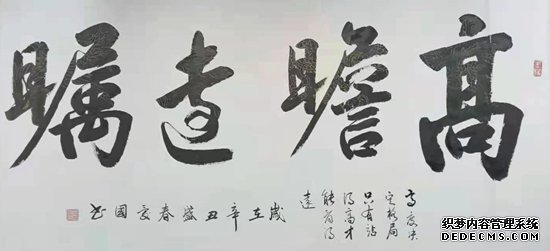 高瞻遠瞩
高度决
定格局
只有站
得高才
能看得
遠
歲在辛丑盛春爱國书
织梦内容管理系统
DEDECMS.COM